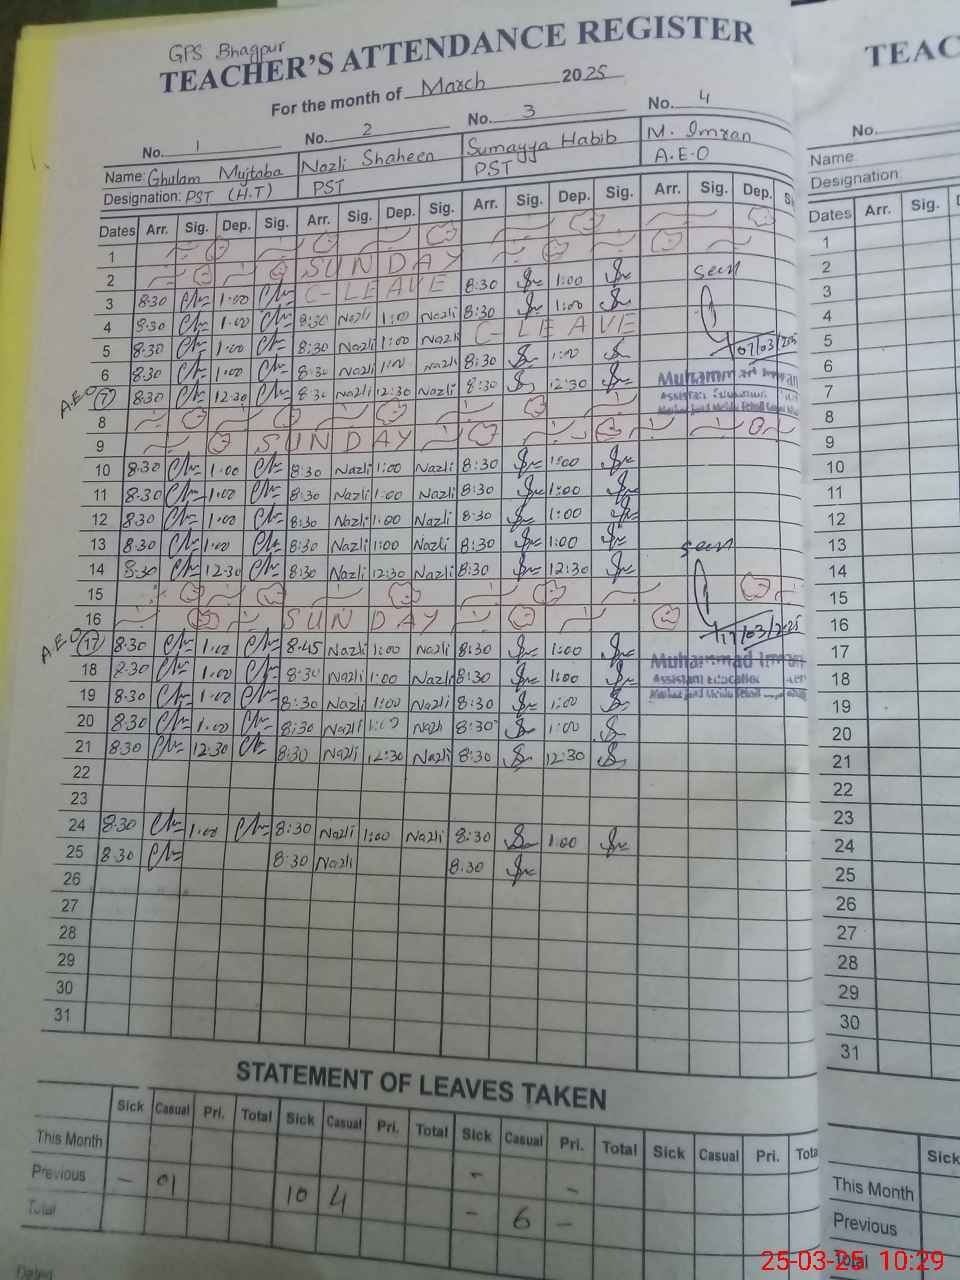 GPS Bhagpur
TEACHER'S ATTENDANCE REGISTER
For the month of March 2025
No. 1 No. 2 No. 3 No. 4
Name: Ghulam Mujtaba Nazli Shaheen Sumayya Habib M. Imran
Designation: PST (H.T) PST PST A.E.O
Dates Arr. Sig. Dep. Sig. Arr. Sig. Dep. Sig. Arr. Sig. Dep. Sig. Arr. Sig. Dep.
1
2 SUNDAY
3 8:30 1:00 C-LEAVE 8:30 1:00 seen
4 8:30 1:00 8:30 Nazli 1:00 Nazli 8:30 1:00
5 8:30 1:00 8:30 Nazli 1:00 Nazli C-LEAVE
6 8:30 1:00 8:30 Nazli 1:00 Nazli 8:30 1:00 07/03/2025
A.E.O 7 8:30 12:30 8:30 Nazli 12:30 Nazli 8:30 12:30 Muhammad Imran
8
9 SUNDAY
10 8:30 1:00 8:30 Nazli 1:00 Nazli 8:30 1:00
11 8:30 1:00 8:30 Nazli 1:00 Nazli 8:30 1:00
12 8:30 1:00 8:30 Nazli 1:00 Nazli 8:30 1:00
13 8:30 1:00 8:30 Nazli 1:00 Nazli 8:30 1:00
14 8:30 12:30 8:30 Nazli 12:30 Nazli 8:30 12:30 seen
15
16 SUNDAY
A.E.O 17 8:30 1:00 8:45 Nazli 1:00 Nazli 8:30 1:00 17/03/2025
18 8:30 1:00 8:30 Nazli 1:00 Nazli 8:30 1:00 Muhammad Imran
19 8:30 1:00 8:30 Nazli 1:00 Nazli 8:30 1:00 Assistant Education
20 8:30 1:00 8:30 Nazli 1:00 Nazli 8:30 1:00
21 8:30 12:30 8:30 Nazli 12:30 Nazli 8:30 12:30
22
23
24 8:30 1:00 8:30 Nazli 1:00 Nazli 8:30 1:00
25 8:30 8:30 Nazli 8.30
26
27
28
29
30
31
STATEMENT OF LEAVES TAKEN
Sick Casual Pri. Total Sick Casual Pri. Total Sick Casual Pri. Total Sick Casual Pri.
This Month
Previous - 01 10 4 - -
Total - 6 -
TEAC
No.
Name
Designation:
Dates Arr. Sig.
1
2
3
4
5
6
7
8
9
10
11
12
13
14
15
16
17
18
19
20
21
22
23
24
25
26
27
28
29
30
31
Sick
This Month
Previous
Total
25-03-25 10:29